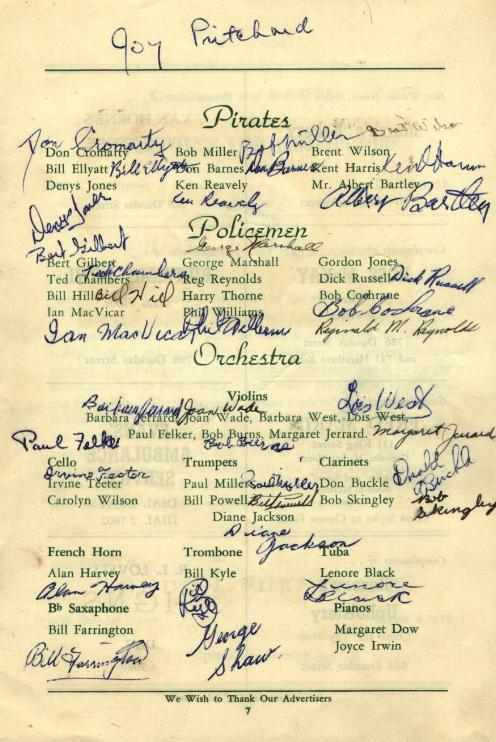 Joy Pritchard
Pirates
Don Cromarty Bob Miller Brent Wilson
Don Cromarty Bob Miller Brent Wilson
Bill Ellyatt Bill Ellyatt Don Barnes Don Barnes Kent Harris
Denys Jones Ken Reavely Mr. Albert Bartley
Denys Jones Ken Reavely Albert Bartley
Policemen
Bert Gilbert George Marshall
Bert Gilbert George Marshall Gordon Jones
Ted Chambers Ted Chambers Reg Reynolds Dick Russell Dick Russell
Bill Hill Bill Hill Harry Thorne Bob Cochrane
Ian MacVicar Phil Williams Bob Cochrane
Ian MacVicar Phil Williams Reginald M. Reynolds
Orchestra
Violins
Barbara Jerrard Joan Wade Lois West
Barbara Jerrard, Joan Wade, Barbara West, Lois West,
Paul Felker, Bob Burns, Margaret Jerrard. Margaret Jerrard
Paul Felker Bob Burns
Cello Trumpets Clarinets
Irvine Teeter
Irvine Teeter Paul Miller Paul Miller Don Buckle Donald Buckle
Carolyn Wilson Bill Powell Bill Powell Bob Skingley Bob Skingley
Diane Jackson
Diane Jackson
French Horn Trombone Tuba
Alan Harvey Bill Kyle Lenore Black
Alan Harvey Bill Kyle Lenore Black
Bb Saxaphone Pianos
Bill Farrington George Shaw. Margaret Dow
Bill Farrington Joyce Irwin
We Wish to Thank Our Advertisers
7